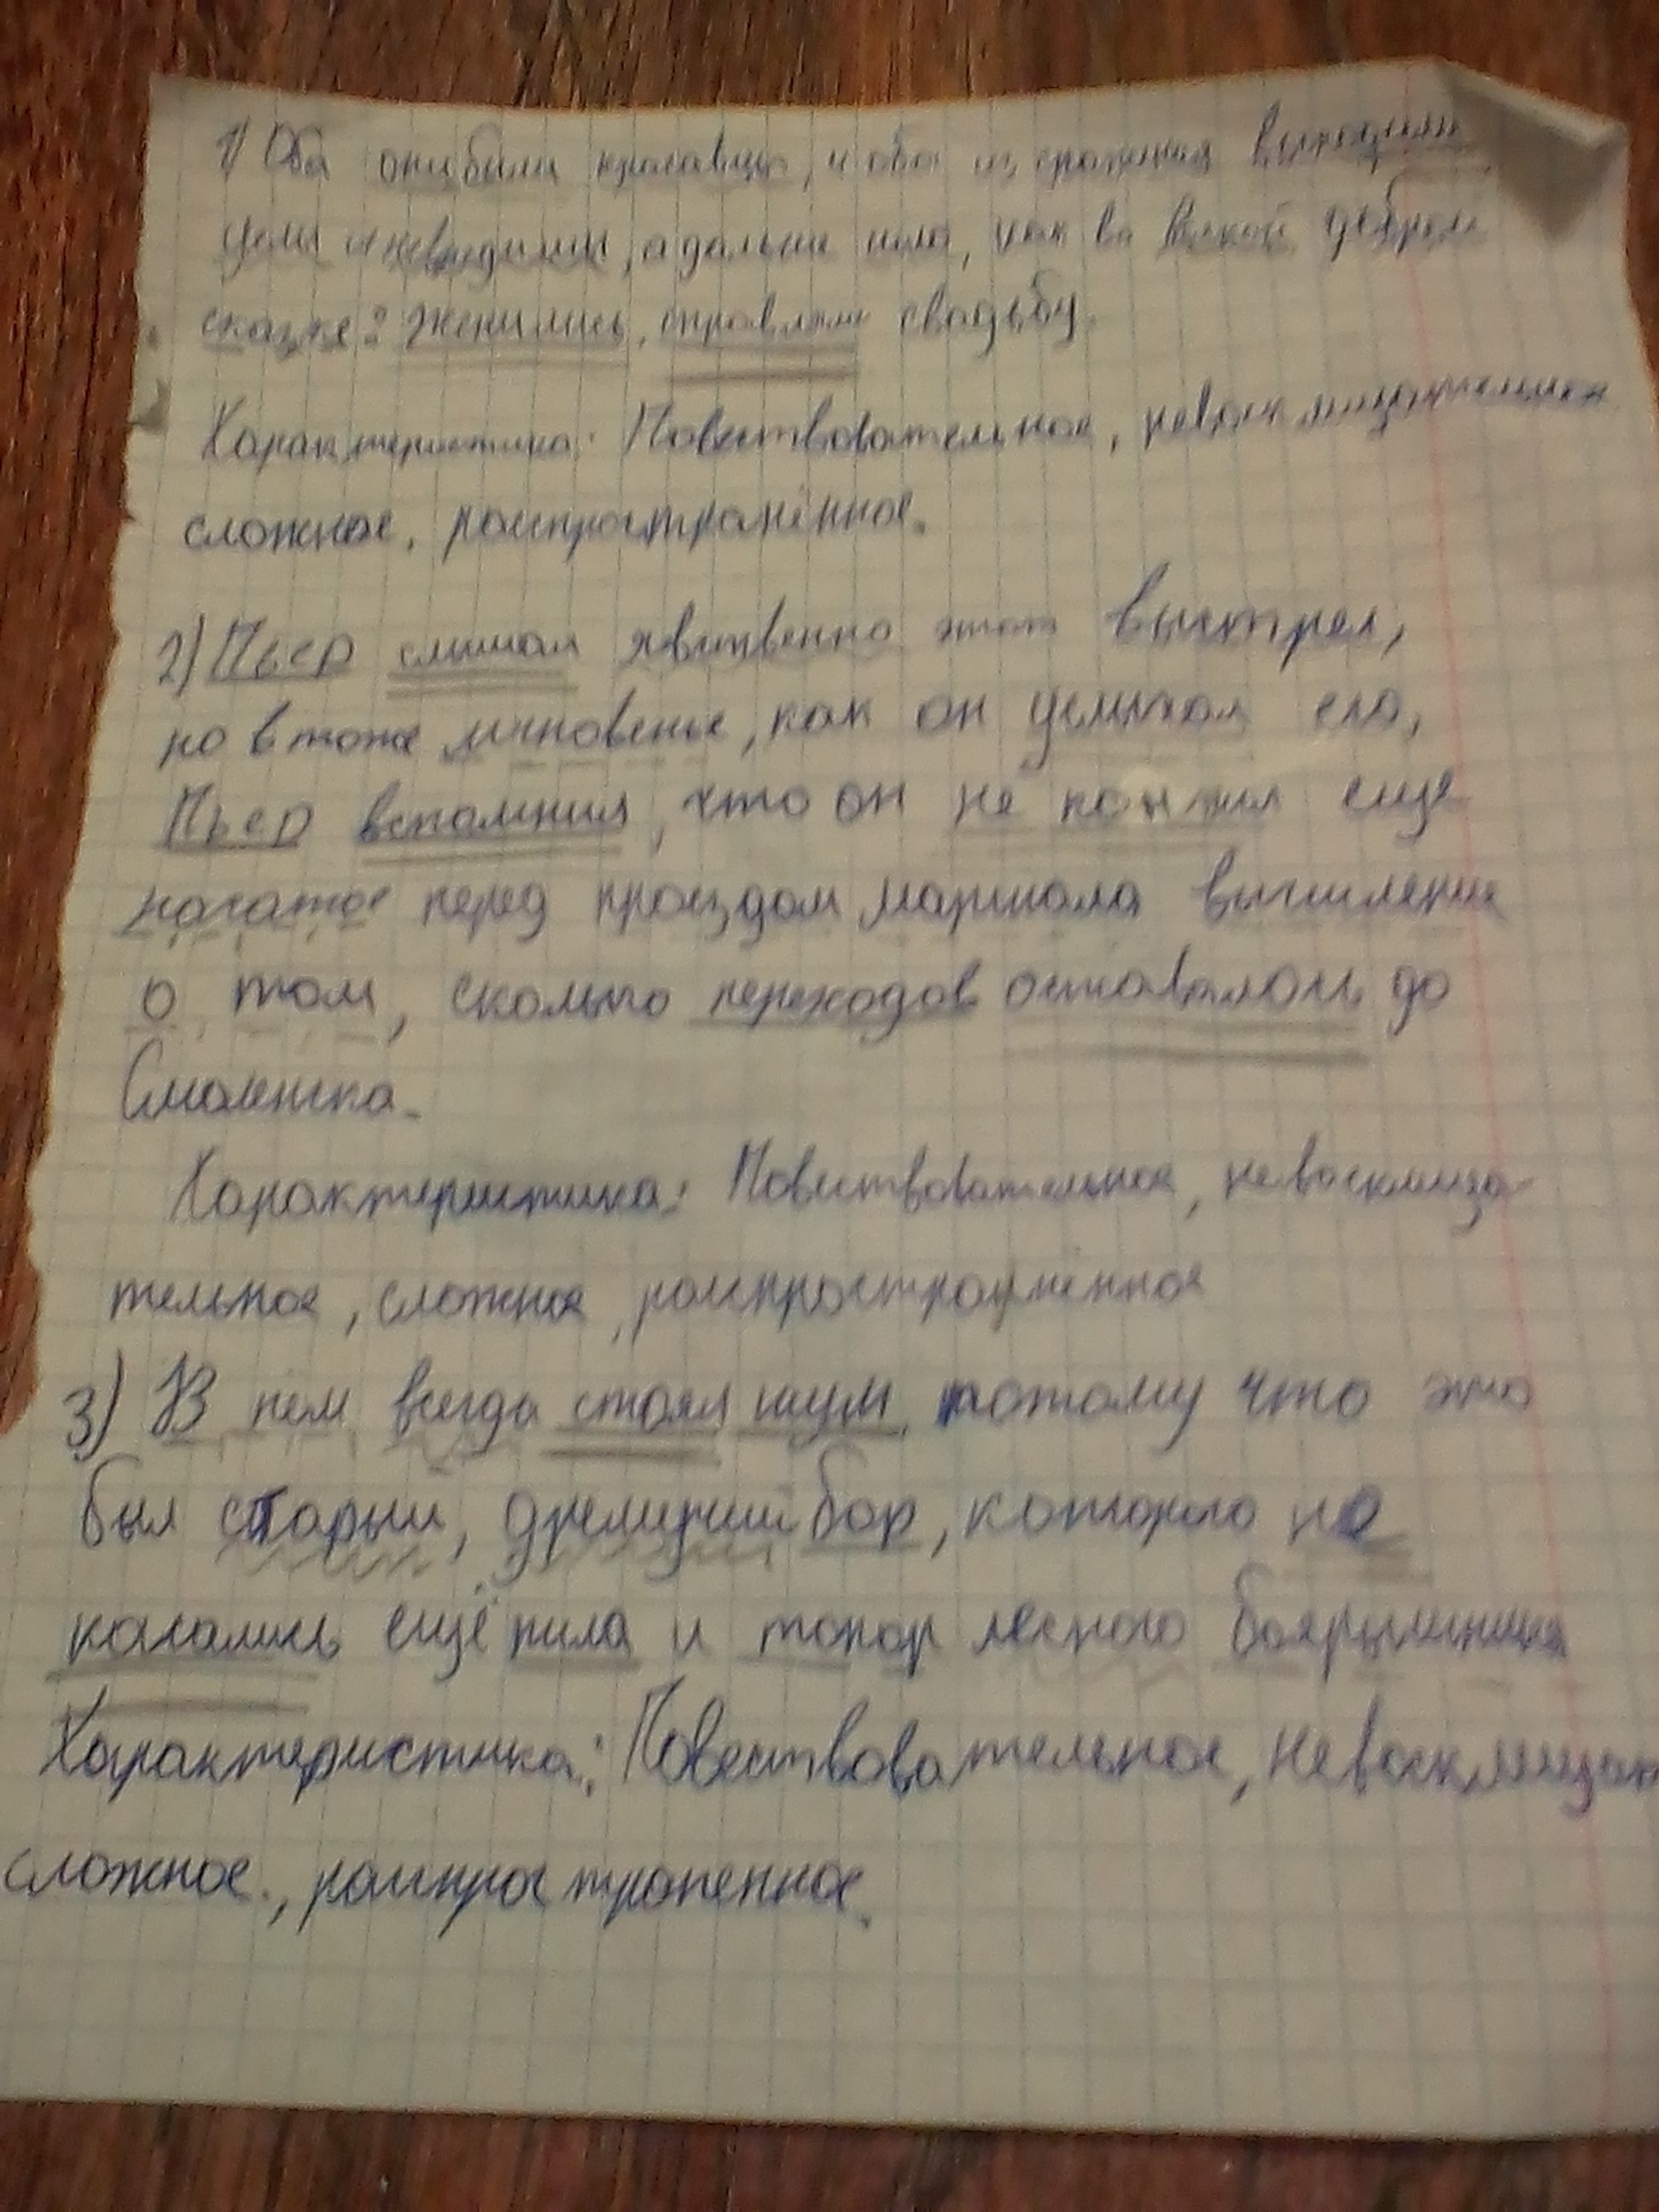 1) Оба они были красавцы, и оба из сражения выходили
целы и невредимы, а дальше шло, как во всякой доброй
сказке: женились, справляли свадьбу.
Характеристика: Повествовательное, невосклицательное
сложное, распространённое.
2) Пьер слышал явственно этот выстрел,
но в то же мгновенье, как он услыхал его,
Пьер вспомнил, что он не кончил еще
начатое перед проездом маршала вычисление
о том, сколько переходов оставалось до
Смоленска.
Характеристика: Повествовательное, невосклица-
тельное, сложное, распространённое
3) В нём всегда стоял шум, потому что это
был старый, дремучий бор, которого не
касались ещё пила и топор лесного
Характеристика: Повествовательное, невосклицат
сложное, распространенное.